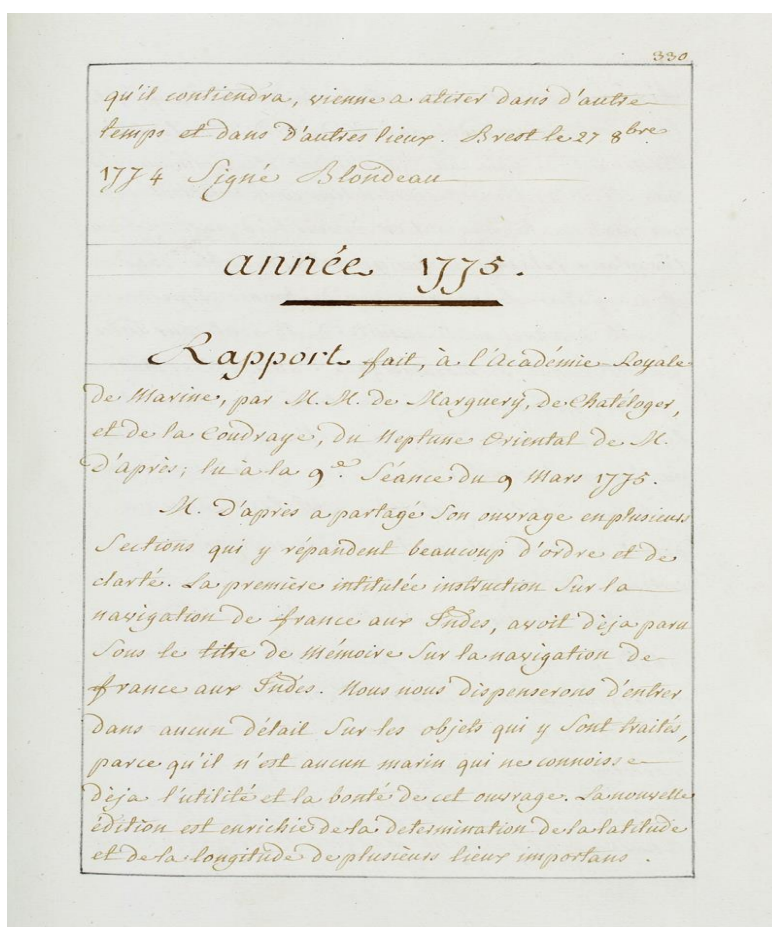 330.
qu'il contiendra, vienne a atirer dans d'autre
temps et dans d'autres lieux. Brest le 27 8bre
1774 Signé Blondeau
année 1775.
Rapport fait, à l'Académie Royale
de Marine, par M. M. de Marguerÿ, de Chatéloger,
et de la Coudraye, du Neptune Oriental de M.
D'après; lu à la 9e. Séance du 9 Mars 1775.
M. D'après a partagé Son ouvrage en plusieurs
Sections qui y répandent beaucoup d'ordre et de
clarté. La premiere intitulée instruction Sur la
navigation de france aux Indes, avoit dèja paru
Sous le titre de Mémoire Sur la navigation de
france aux Indes. Nous nous dispenserons d'entrer
dans aucun détail Sur les objets qui y Sont traités,
parce qu'il n'est aucun marin qui ne connoisse
dèja l'utilité et la bonté de cet ouvrage. La nouvelle
édition est enrichie de la determination de la latitude
et de la longitude de plusieurs lieux importans.